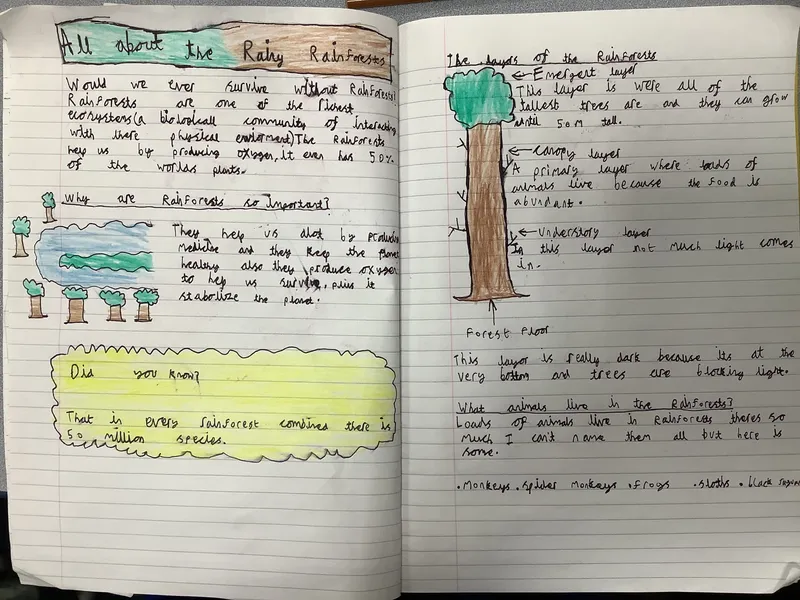 All about the Rainy Rainforests
Would we ever survive without Rainforests?
Rainforests are one of the richest
ecosystems(a biologicall community of interacting
with there physical enviorment)The Rainforests
help us by producing oxygen, it even has 50%
of the worlds plants.
Why are Rainforests so important?
They help us alot by producing
medicine and they keep the planet
healthy also they produce oxygen
to help us survive, plus it
stabolize the planet.
Did you know?
That in every rainforest combined there is
50 million species.
The layers of the Rainforests
Emergent layer
This layer is were all of the
tallest trees are and they can grow
until 50m tall.
canopy layer
A primary layer where loads of
animals live because the food is
abundant.
understory layer
In this layer not much light comes
in.
Forest Floor
This layer is really dark because its at the
very bottom and trees are blocking light.
What animals live in the Rainforests?
Loads of animals live in Rainforests theres so
much I can't name them all but here is
some.
.Monkeys .spider monkeys .frogs .sloths .black